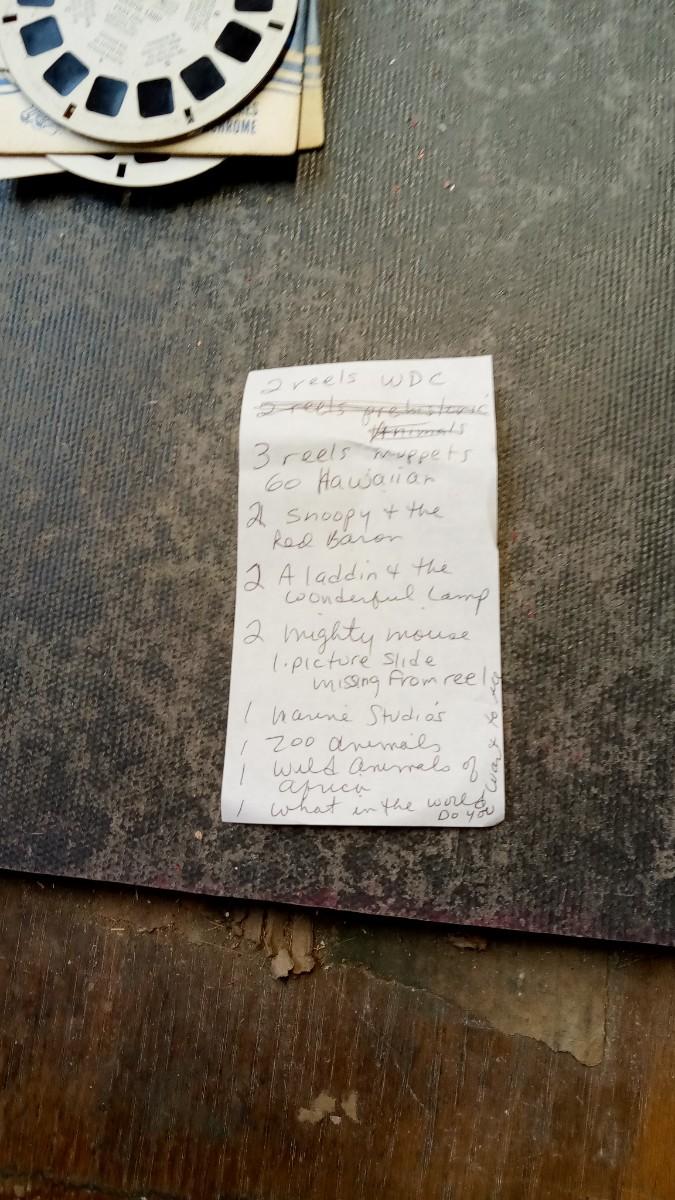 CHROME
2 reels WDC
2 reels prehistoric
Animals
3 reels muppets
Go Hawaiian
2 Snoopy + the
Red Baron
2 Aladdin & the
wonderful Lamp
2 mighty mouse
1. picture slide
missing From reel
1 marine Studios
1 zoo animals
1 wild animals of
africa
1 what in the world
Do you
want to